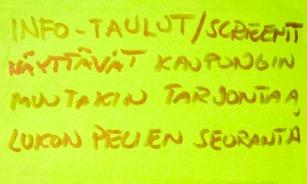 INFO-TAULUT/SCREENIT
NÄYTTÄVÄT KAUPUNGIN
MUUTAKIN TARJONTAA,
LUKON PELIEN SEURANTA